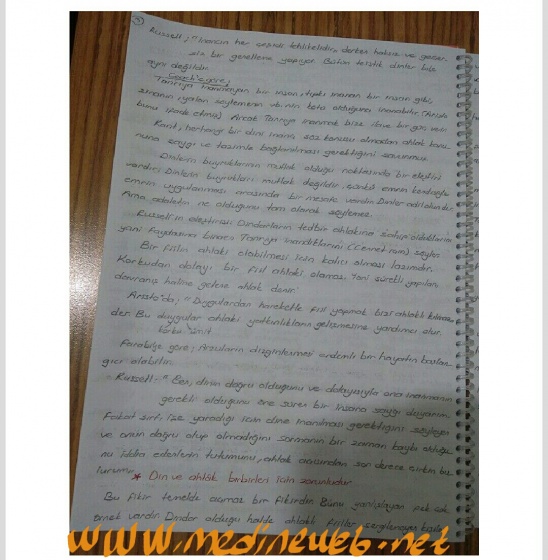 Russell; "İnancın her çeşidi tehlikelidir" derken haksız ve gerek-
siz bir genelleme yapıyor. Bütün teistik dinler bile
aynı değildir.
Gazali'ye göre;
Tanrıya inanmayan bir insan, tıpkı inanan bir insan gibi,
zinanın, yalan söylemenin vb.nin kötü olduğuna inanabilir. (Aristo
bunu ifade etmiş) Ancak Tanrıya inanmak bize ilave bir güç verir.
Kant, herhangi bir dini inanç söz konusu olmadan ahlak kanu-
nuna saygı ve tazimle bağlanılması gerektiğini savunmuş.
Dinlerin buyruklarının mutlak olduğu noktasında bir eleştiri
vardır. Dinlerin buyrukları mutlak değildir, çünkü emrin kendisiyle
emrin uygulanması arasında bir mesafe vardır. Dinler adil olmalıdır
Ama adaletin ne olduğunu tam olarak söylemez.
Russell'in eleştirisi: Dindarların tedbir ahlakına sahip olduklarını
yani faydasına binaen Tanrıya inandıklarını (Cennet için) söyler.
Bir fiilin ahlaki olabilmesi için kalıcı olması lazımdır.
Korkudan dolayı bir fiil ahlaki olamaz. Yani sürekli yapılan,
davranış haline gelene ahlak denir.
Aristo'da; "Duygulardan hareketle fiil yapmak bizi ahlaklı kılmaz
der. Bu duygular ahlaki yatkınlıkların gelişmesine yardımcı olur.
korku, ümit
Farabiye göre; Arzuların dizginlenmesi erdemli bir hayatın başlan-
gıcı olabilir.
Russell- "Ben, dinin doğru olduğunu ve dolayısıyla ona inanmanın
gerekli olduğunu öne süren bir insana saygı duyarım.
Fakat sırf işe yaradığı için dine inanılması gerektiğini söyleyen
ve onun doğru olup olmadığını sormanın bir zaman kaybı olduğu-
nu iddia edenlerin tutumunu, ahlak açısından son derece çirkin bu-
lurum."
* Din ve ahlâk birbirleri için sorunludur.
Bu fikir temelde açmaz bir fikirdir. Bunu yanlışlayan pek çok
örnek vardır. Dindar olduğu halde ahlaklı fiiller sergilemeyen
www.medineweb.net